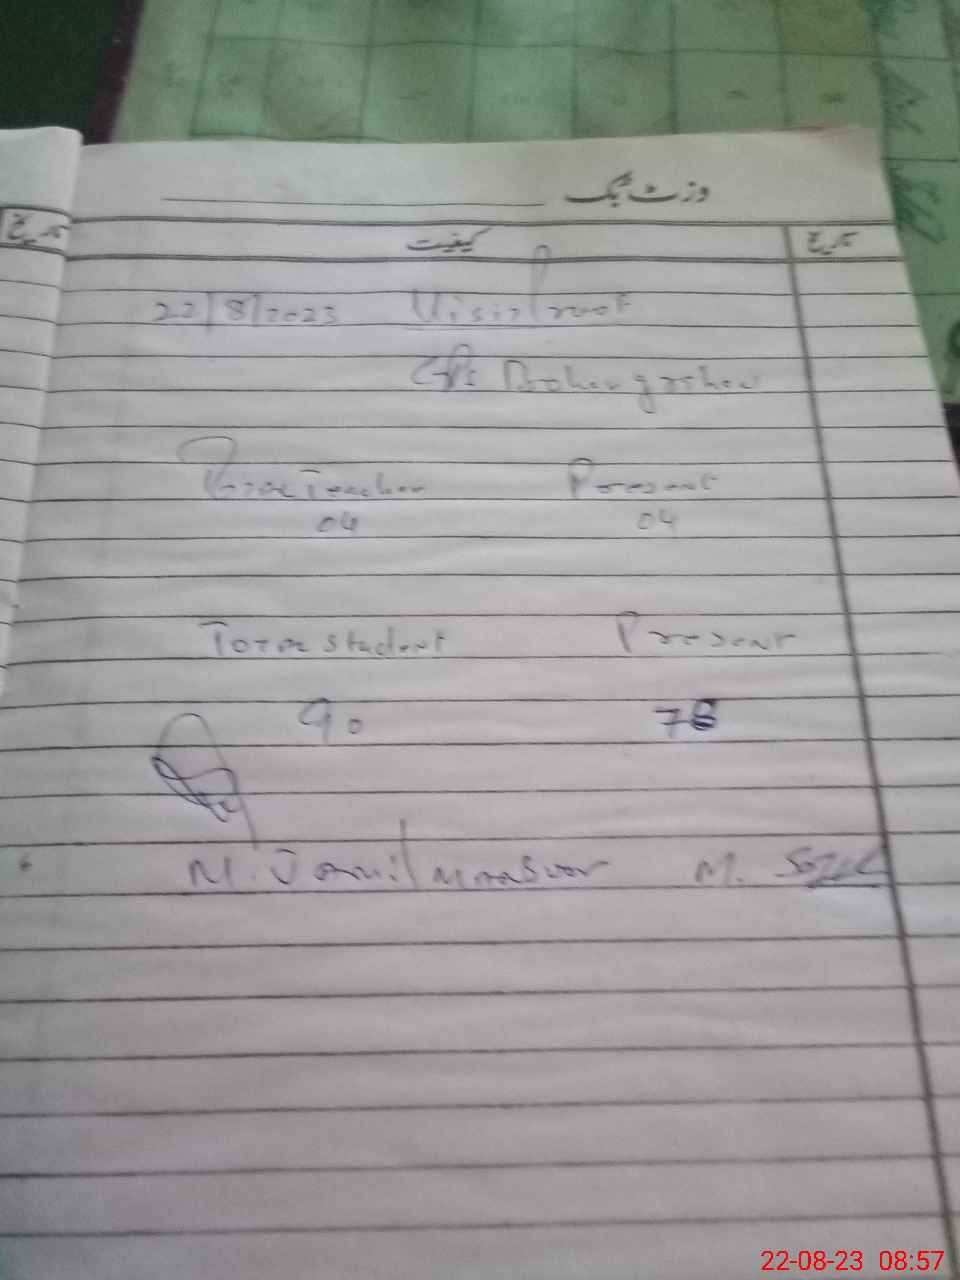 وزٹ بک
تاریخ کیفیت تاریخ
22/8/2023 Visit
GPS
Teacher Present
04 04
Total Student Present
90 76
M. Jamil M.
22-08-23 08:57